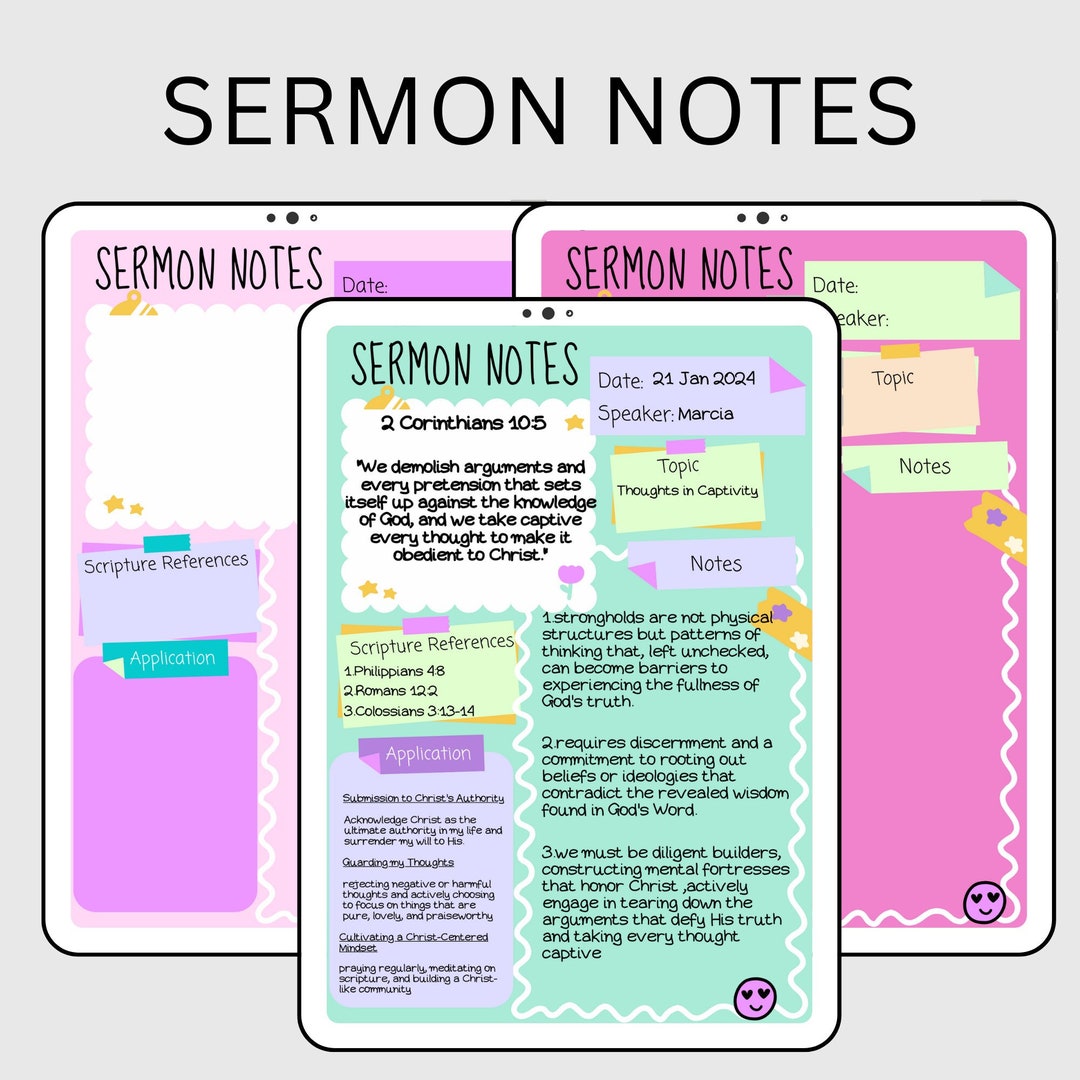 SERMON NOTES
SERMON NOTES
Date:
Scripture References
Application
SERMON NOTES
Date: 21 Jan 2024
Speaker: Marcia
2 Corinthians 10:5
"We demolish arguments and
every pretension that sets
itself up against the knowledge
of God, and we take captive
every thought to make it
obedient to Christ."
Topic
Thoughts in Captivity
Notes
1.strongholds are not physical
structures but patterns of
thinking that, left unchecked,
can become barriers to
experiencing the fullness of
God's truth.
2.requires discernment and a
commitment to rooting out
beliefs or ideologies that
contradict the revealed wisdom
found in God's Word.
3.we must be diligent builders,
constructing mental fortresses
that honor Christ ,actively
engage in tearing down the
arguments that defy His truth
and taking every thought
captive
Scripture References
1.Philippians 4:8
2.Romans 12:2
3.Colossians 3:13-14
Application
Submission to Christ's Authority
Acknowledge Christ as the
ultimate authority in my life and
surrender my will to His.
Guarding my Thoughts
rejecting negative or harmful
thoughts and actively choosing
to focus on things that are
pure, lovely, and praiseworthy
Cultivating a Christ-Centered
Mindset
praying regularly, meditating on
scripture, and building a Christ-
like community
SERMON NOTES
Date:
eaker:
Topic
Notes